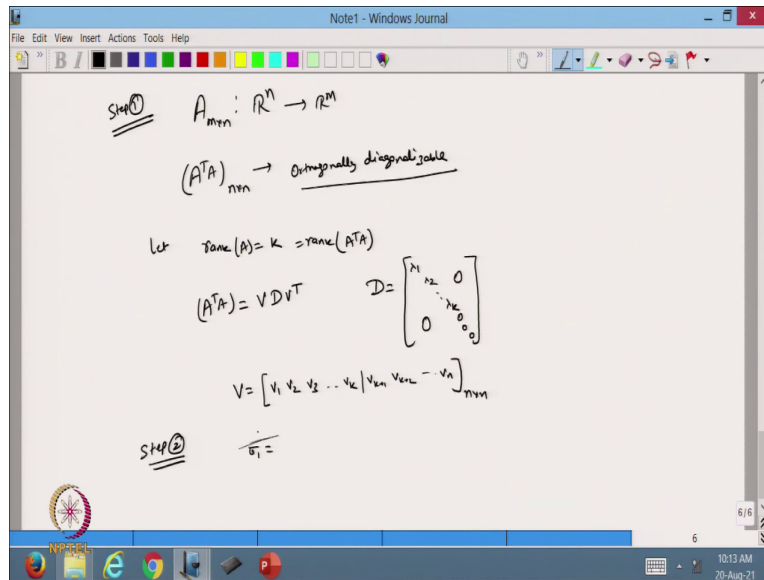 Note1 - Windows Journal
File Edit View Insert Actions Tools Help
B I
Step ① A_{m×n} : ℝ^n → ℝ^m
(A^T A)_{n×n} → Orthogonally diagonalizable
let rank(A) = K = rank(A^T A)
(A^T A) = V D V^T D = [λ1 λ2 ⋱ λK 0 0 0 0 0]
V = [v1 v2 v3 .. vK | vK+1 vK+2 -- vn]_{n×n}
Step ② σ1 =
NPTEL
6/6
6
10:13 AM
20-Aug-21